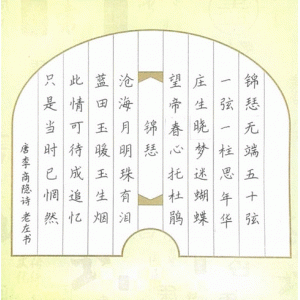 锦瑟无端五十弦
一弦一柱思年华
庄生晓梦迷蝴蝶
望帝春心托杜鹃
锦瑟
沧海月明珠有泪
蓝田玉暖玉生烟
此情可待成追忆
只是当时已惘然
唐李商隐诗 老左书